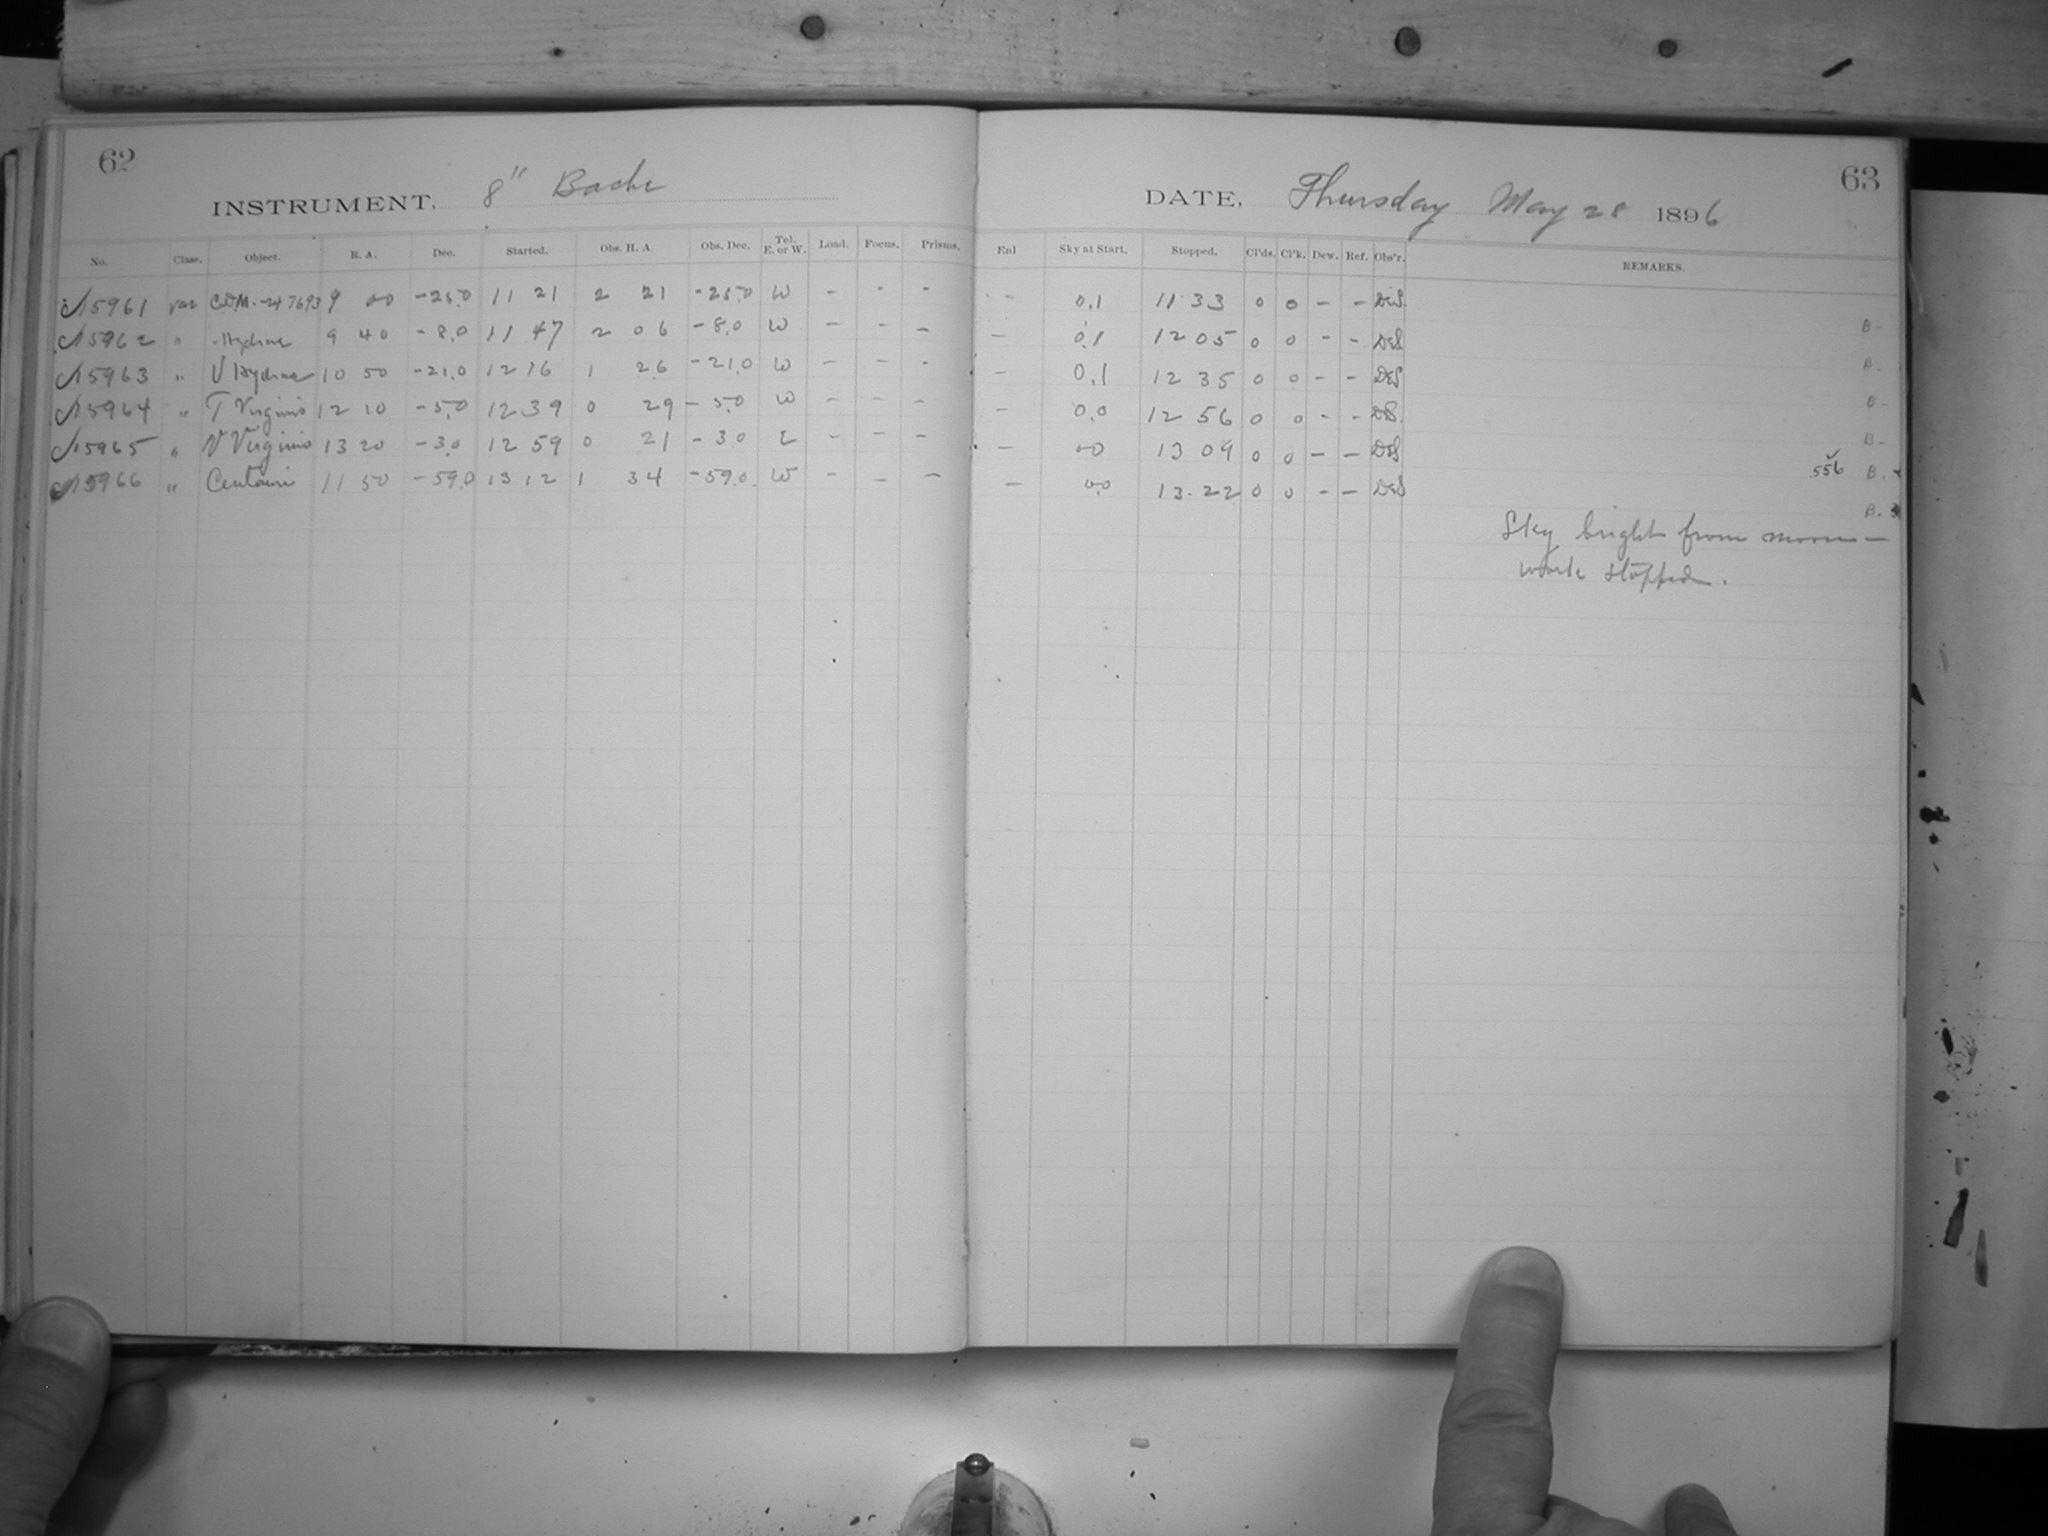 62
INSTRUMENT. 8" Bache
No. Class. Object. R. A. Dec. Started. Obs. H. A. Obs. Dec. Tel. E. or W. Load. Focus. Prisms.
15961 var C.D.M. -24 7693 9 00 -25.0 11 21 2 21 -25.0 W - - -
15962 " - Hydrae 9 40 -8.0 11 47 2 06 -8.0 W - - -
15963 " U Hydrae 10 50 -21.0 12 16 1 26 -21.0 W - - -
15964 " T Virginis 12 10 -5.0 12 39 0 29 -5.0 W - - -
15965 " V Virginis 13 20 -3.0 12 59 0 21 -3.0 E - - -
15966 " Centauri 11 50 -59.0 13 12 1 34 -59.0 W - - -
63
DATE. Thursday May 28 1896
Enl Sky at Start. Stopped. Cl'ds. Cl'k. Dew. Ref. Obs'r. REMARKS.
- 0.1 11 33 0 0 - - DES.
B-
- 0.1 12 05 0 0 - - DES
B-
- 0.1 12 35 0 0 - - DES
B-
- 0.0 12 56 0 0 - - DES.
B-
- 0.0 13 09 0 0 - - DES
556 B.
- 0.0 13.22 0 0 - - DES
B.
Sky bright from moon —
work stopped.